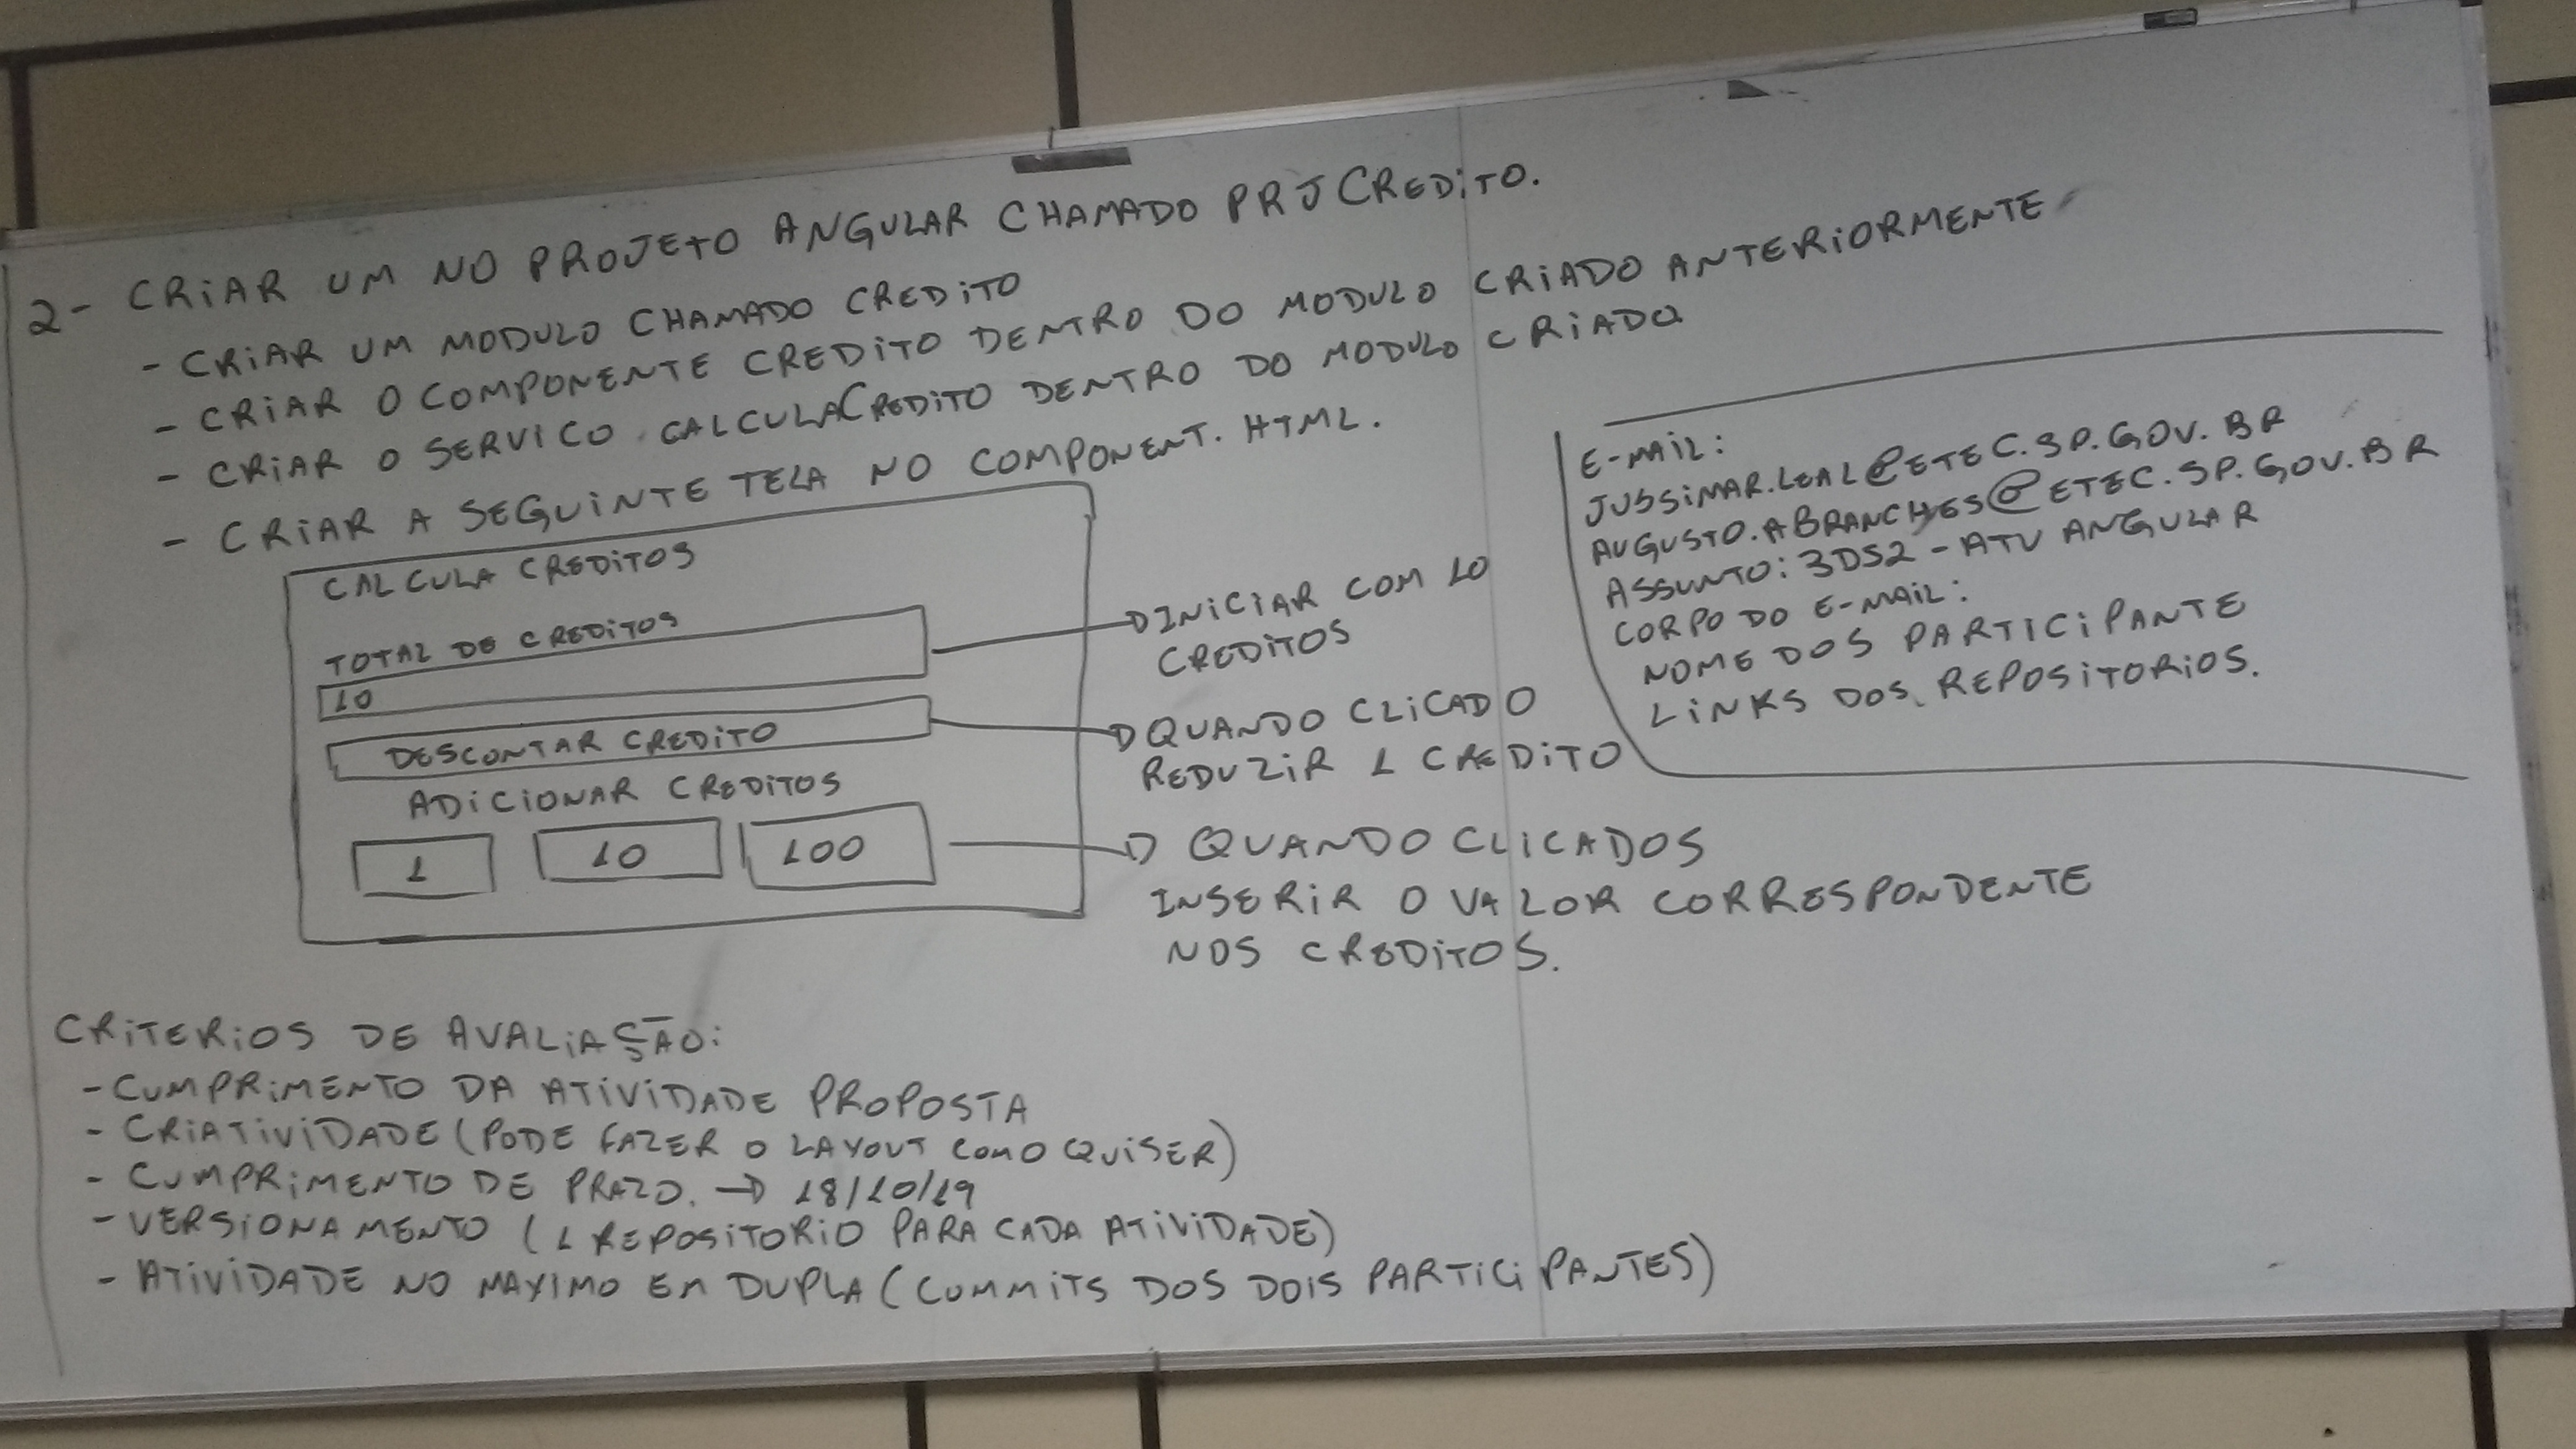 2- CRIAR UM NO PROJETO ANGULAR CHAMADO PRJCREDITO.
- CRIAR UM MODULO CHAMADO CREDITO
- CRIAR O COMPONENTE CREDITO DENTRO DO MODULO CRIADO ANTERIORMENTE
- CRIAR O SERVICO CALCULACREDITO DENTRO DO MODULO CRIADO
- CRIAR A SEGUINTE TELA NO COMPONENT.HTML.
CALCULA CREDITOS
TOTAL DE CREDITOS
10
DESCONTAR CREDITO
ADICIONAR CREDITOS
1 10 100
INICIAR COM 10
CREDITOS
QUANDO CLICADO
REDUZIR 1 CREDITO
QUANDO CLICADOS
INSERIR O VALOR CORRESPONDENTE
NOS CREDITOS.
E-MAIL:
JUSSIMAR.LEAL@ETEC.SP.GOV.BR
AUGUSTO.ABRANCHES@ETEC.SP.GOV.BR
ASSUNTO: 3DS2 - ATV ANGULAR
CORPO DO E-MAIL:
NOME DOS PARTICIPANTE
LINKS DOS REPOSITORIOS.
CRITERIOS DE AVALIAÇÃO:
- CUMPRIMENTO DA ATIVIDADE PROPOSTA
- CRIATIVIDADE (PODE FAZER O LAYOUT COMO QUISER)
- CUMPRIMENTO DE PRAZO. → 18/10/19
- VERSIONAMENTO (1 REPOSITORIO PARA CADA ATIVIDADE)
- ATIVIDADE NO MAXIMO EM DUPLA (COMMITS DOS DOIS PARTICIPANTES)